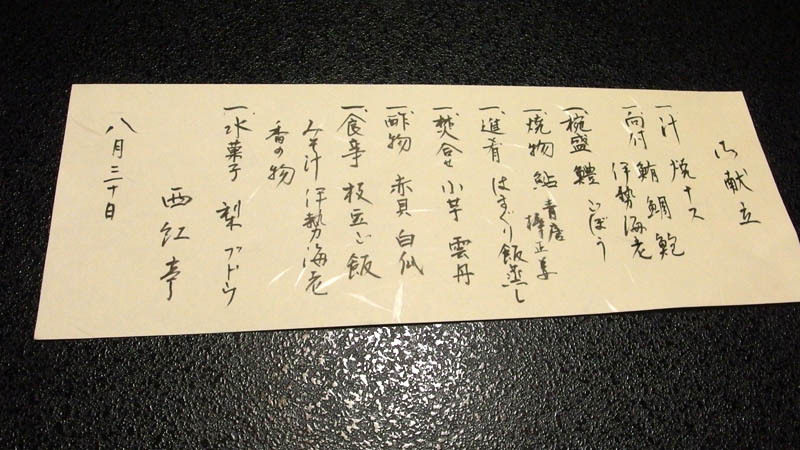 御献立
一、汁 焼ナス
一、向付 鮪 鯛 鮑
伊勢海老
一、椀盛 鱧 ごぼう
一、焼物 鮎 青唐
棒正寿
一、進肴 はまぐり飯蒸し
一、焚合せ 小芋 雲丹
一、酢物 赤貝 白瓜
一、食事 枝豆ご飯
みそ汁 伊勢海老
香の物
一、水菓子 梨 ブドウ
西紅亭
八月三十日